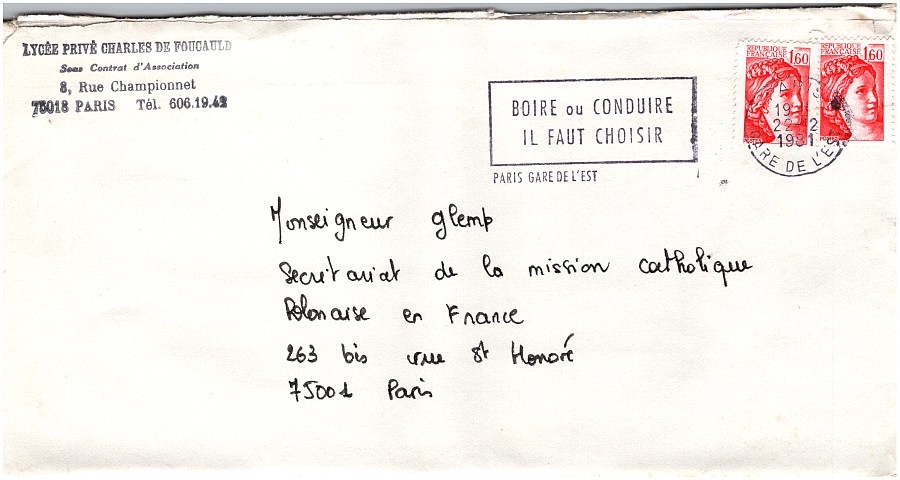 LYCÉE PRIVÉ CHARLES DE FOUCAULD
Sous Contrat d'Association
8, Rue Championnet
75018 PARIS Tél. 606.19.42
BOIRE ou CONDUIRE
IL FAUT CHOISIR
PARIS GARE DE L'EST
REPUBLIQUE FRANÇAISE 1,60
POSTES
REPUBLIQUE FRANÇAISE 1,60
22-12
1981
GARE DE L'EST
Monseigneur Glemp
Secrétariat de la mission catholique
Polonaise en France
263 bis rue St Honoré
75001 Paris